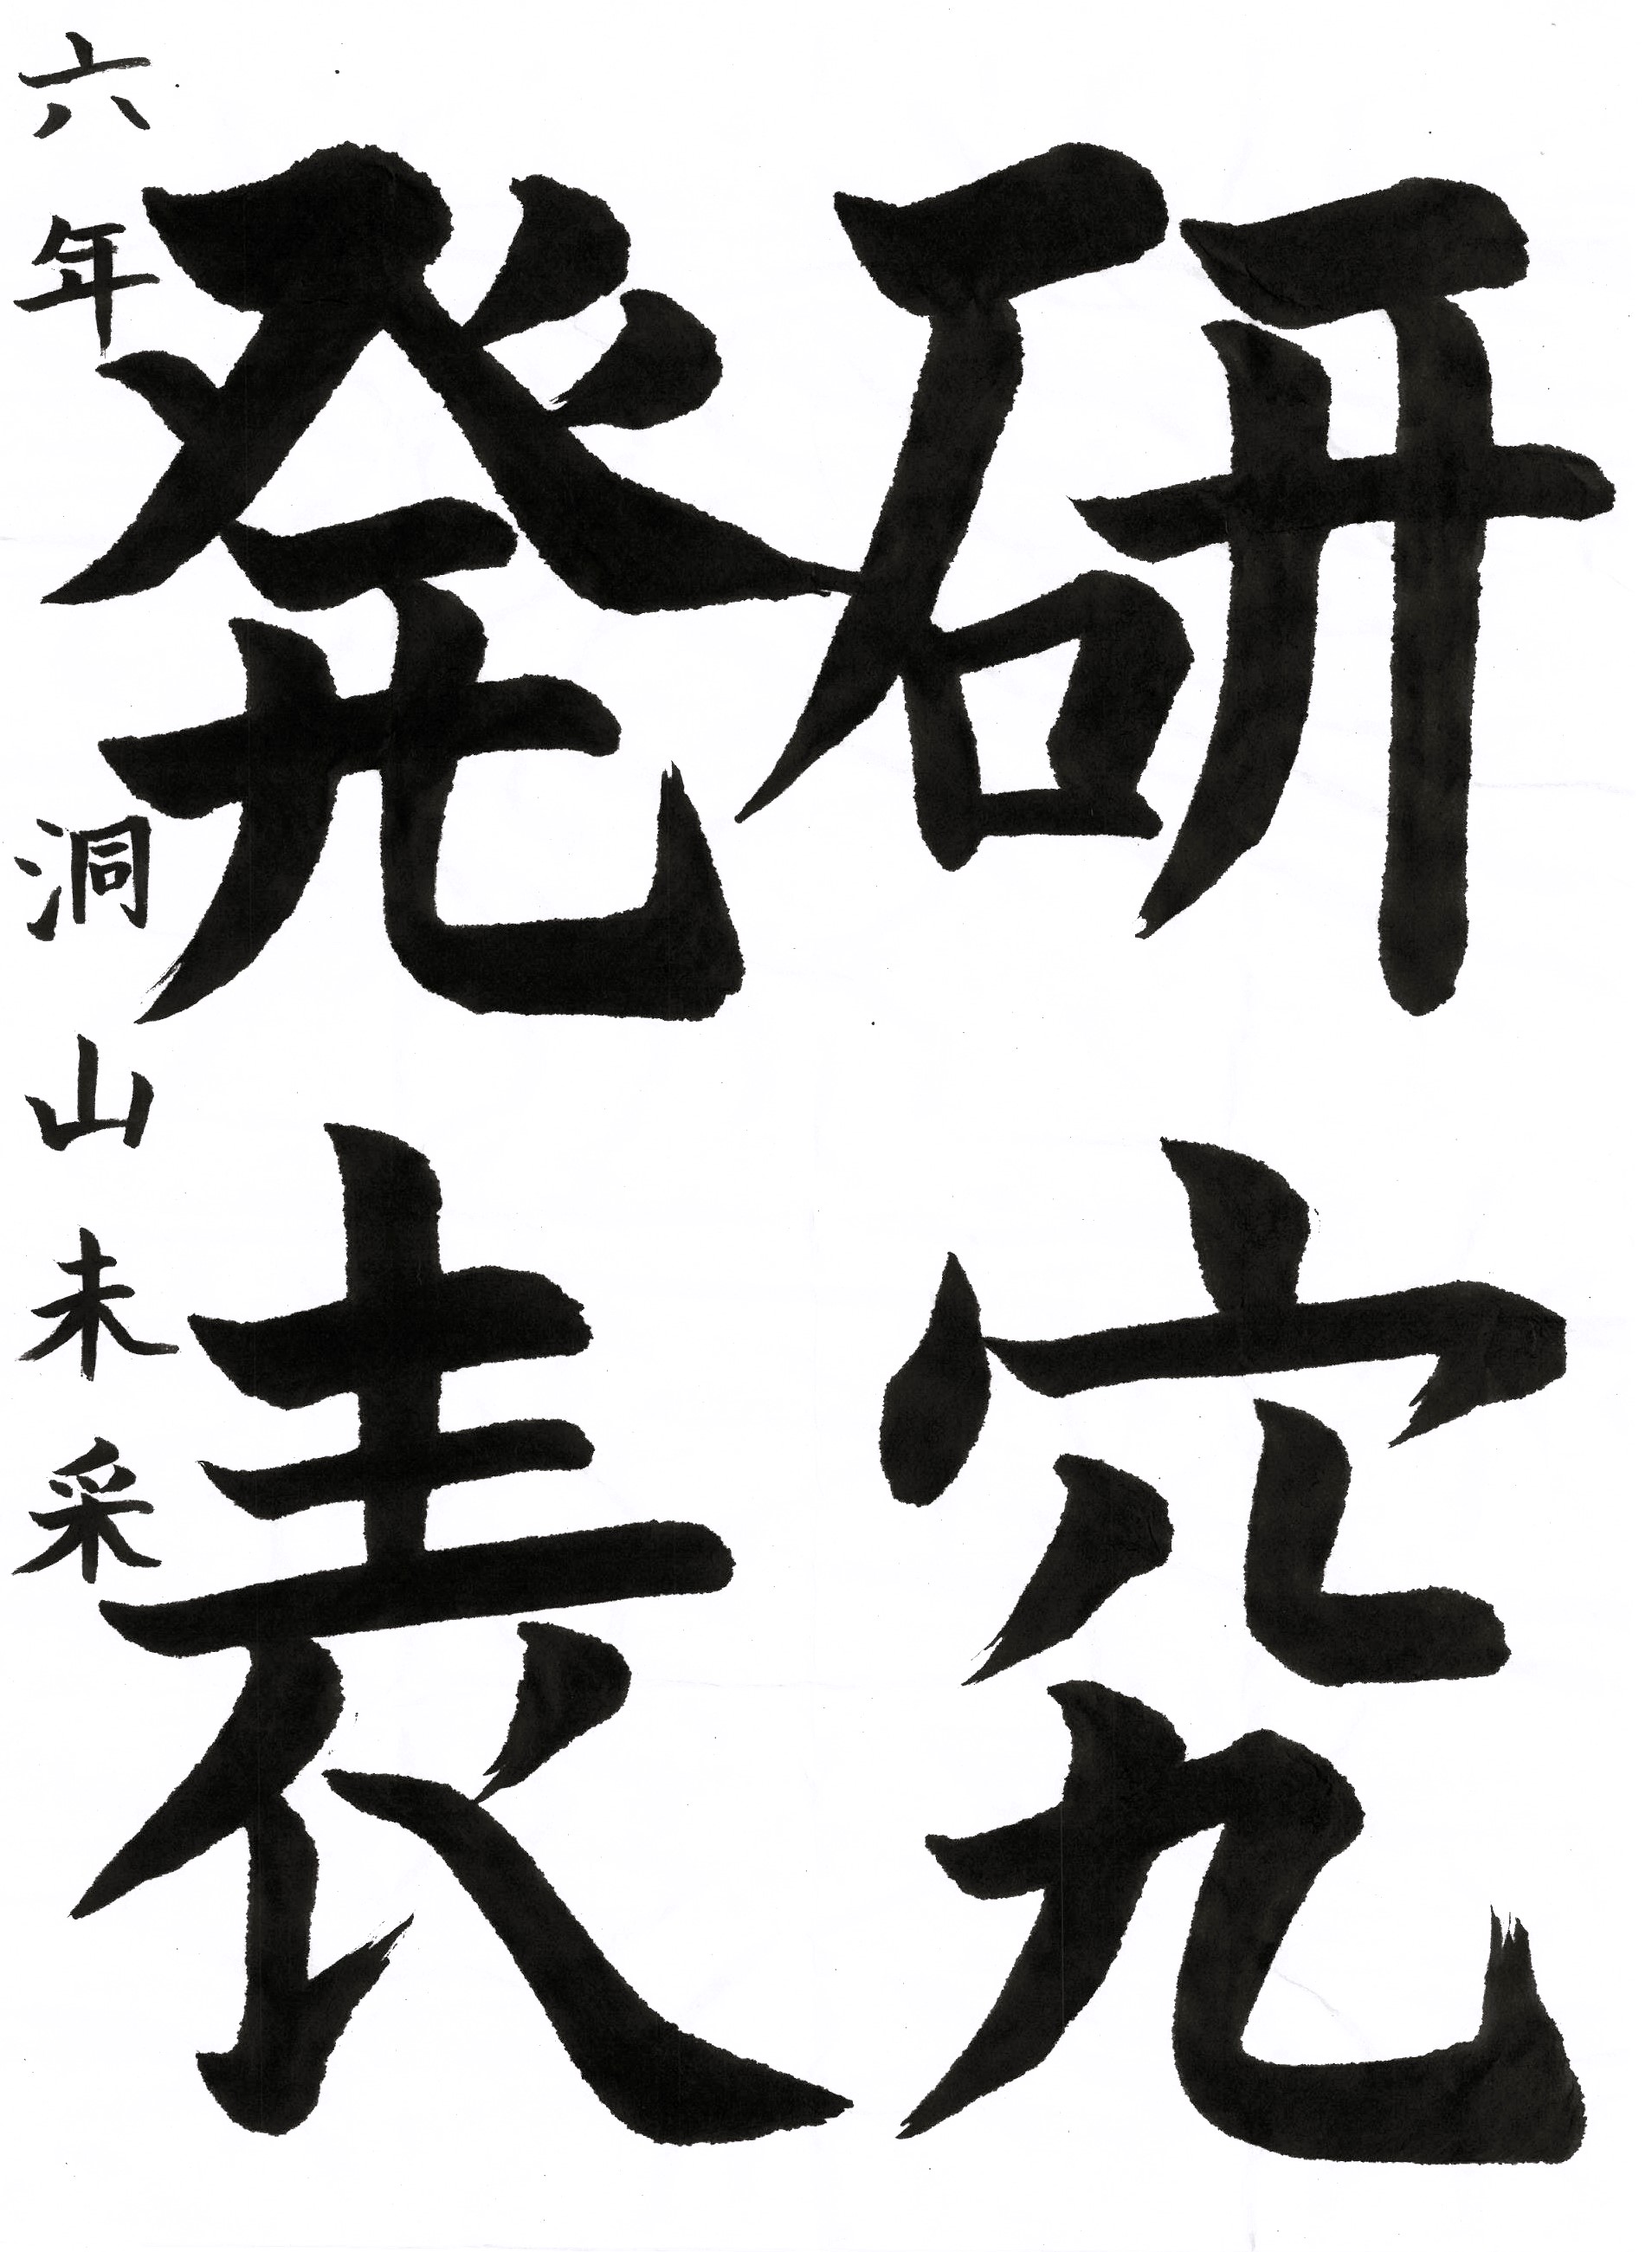 研究
発表
六年 洞山未采